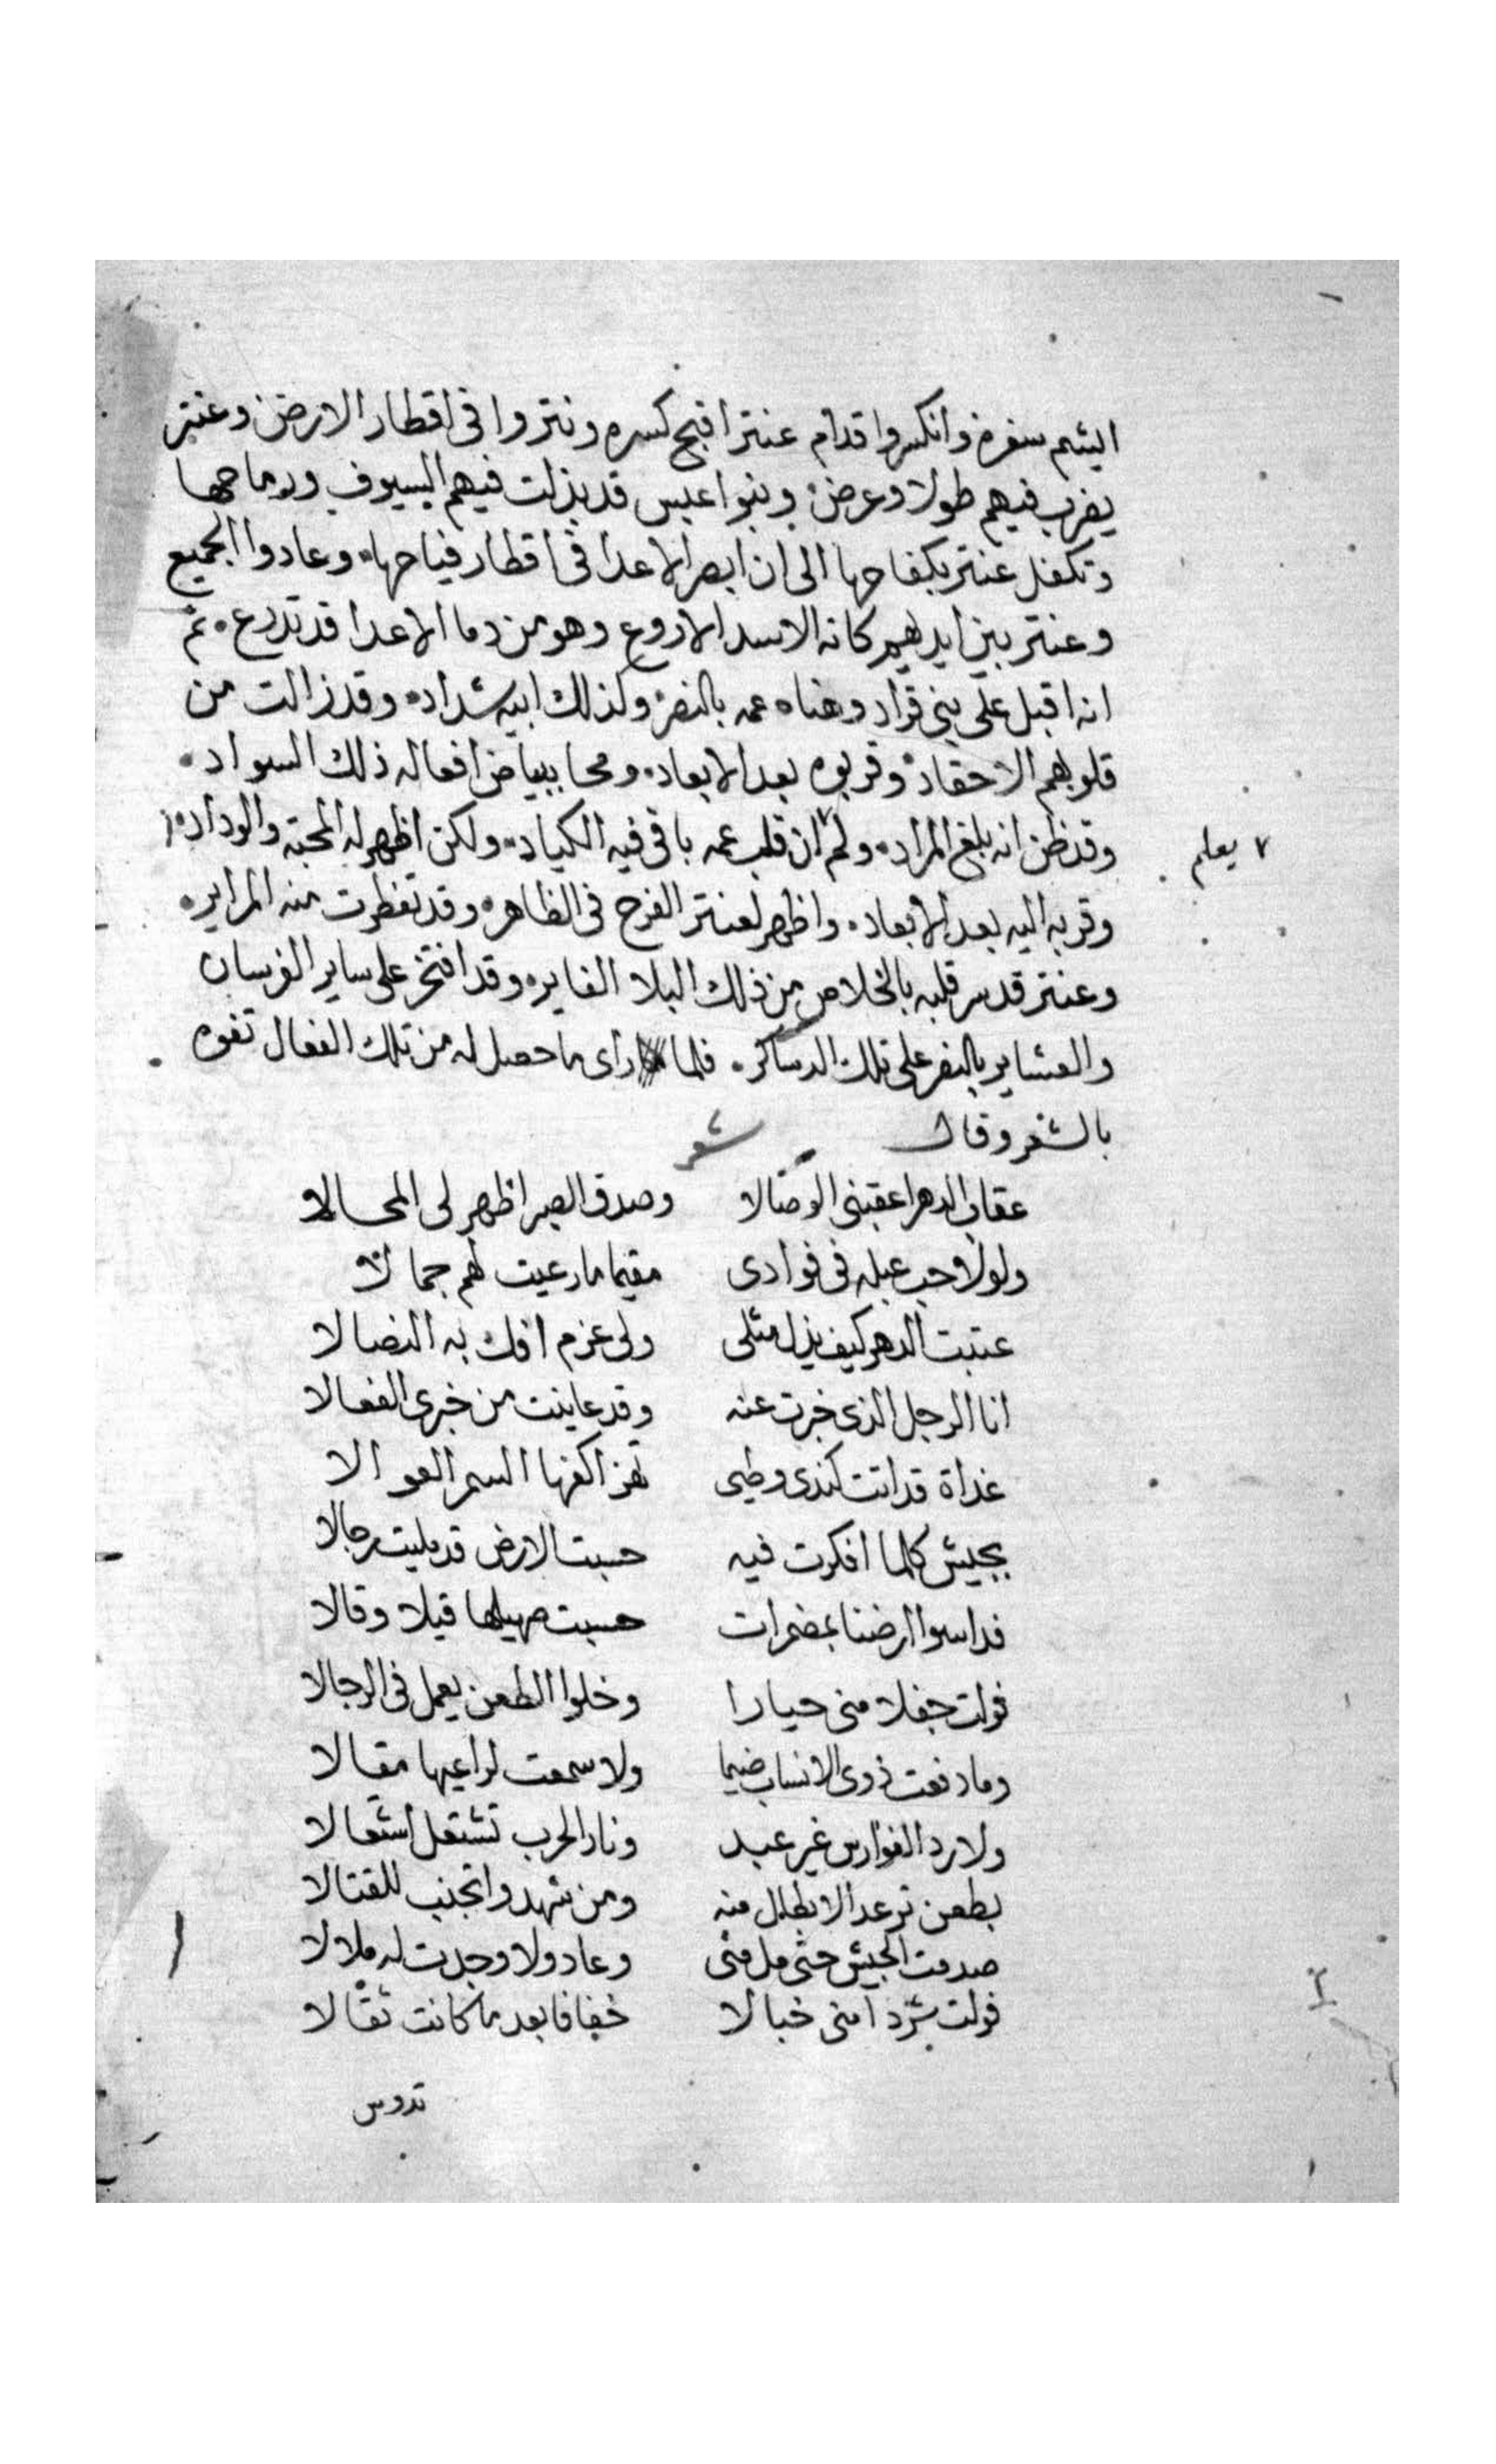 اليشم سفره وانكسروا قدام عنتر اقبح كسره ونتروا فى اقطار الارض وعنتر
يضرب فيهم طولا وعرض وبنوا عبس قد بذلت فيهم السيوف ورماحها
وتكفل عنتر بكفاحها الى ان ابصر الاعدا فى اقطار فياحها وعادوا الجميع
وعنتر بين ايديهم كانه الاسد الاروع وهو من دما الاعدا قد تدرع ثم
انه اقبل على بنى قراد وهناه عمه بالنصر وكذلك ابيه شداد وقد زالت من
قلوبهم الاحقاد وقربوه بعد الابعاد ومحا ببياض افعاله ذلك السواد
وقد ظن انه بلغ المراد ولم ان قلب عمه باقى فيه الكياد ولكن اظهر له المحبه والوداد
يعلم
وقربه اليه بعد الابعاد واظهر لعنتر الفرح فى الظاهر وقد تفطرت منه المراير
وعنتر قد سر قلبه بالخلاص من ذلك البلا الغاير وقد افتخر على ساير الفرسان
والعشاير بالنصر على تلك الدساكر فلما راى ما حصل له من تلك الفعال تفوه
بالشعر وقال شعر
عقاب الدهر اعقبنى الوصالا وصدق الصبر اظهر لى المحالا
ولولا حب عبله فى فوادى مقيما ما رعيت لهم جمالا
عتبت الدهر كيف يذل مثلى ولى عزم افك به النضالا
انا الرجل الذى خبرت عنه وقد عاينت من خبرى الفعالا
غداة قد اتت كندى وطيى تهز اكفها السمر العوالا
بجيش كلما افكرت فيه حسبت الارض قد مليت رجالا
فداسوا ارضنا بمضمرات حسبت صهيلها قيلا وقالا
فولت جفلا منى حيارا وخلوا الطعن يعمل فى الرجالا
وما دفعت ذوى الانساب ضيما ولا سمعت لراعيها مقالا
ولا رد الفوارس غير عبد ونار الحرب تشتعل اشتعالا
بطعن ترعد الابطال منه ومن شهدوا تجنب للقتالا
صدمت الجيش حتى مل منى وعاد ولا وجدت له ملالا
فولت شردا منى خبالا خفافا بعد ما كانت ثقالا
تدوس